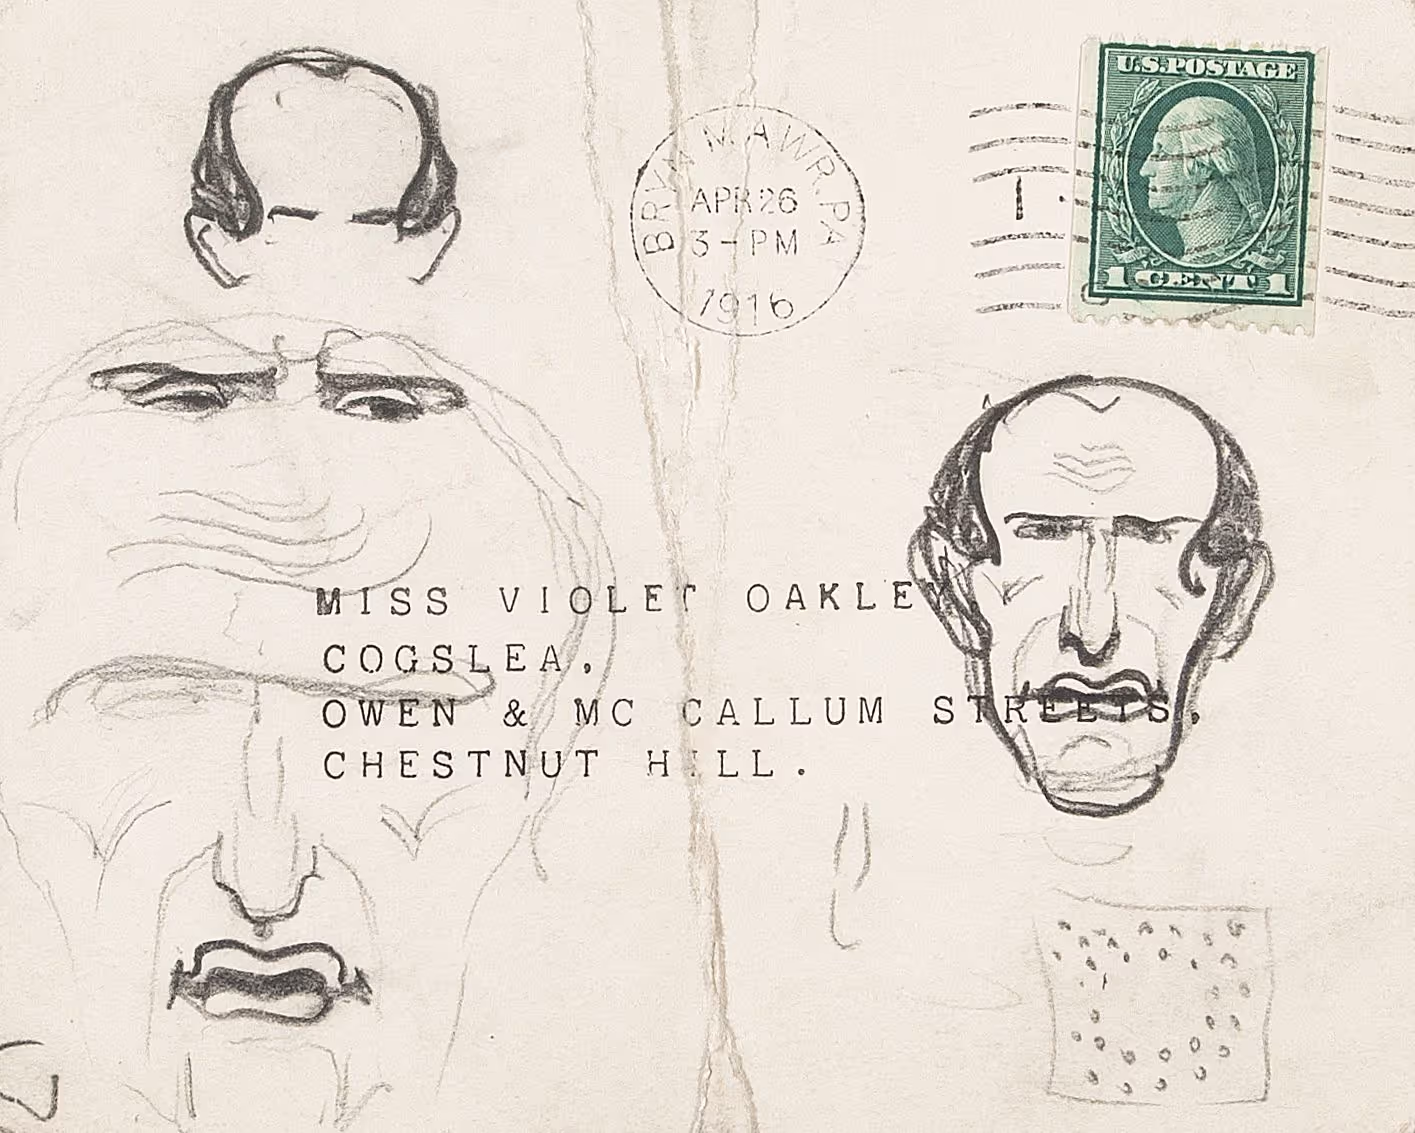 BRYN MAWR, PA
APR 26
3 - PM
1916
1
U.S. POSTAGE
1 CENT 1
MISS VIOLET OAKLEY,
COGSLEA.
OWEN & MC CALLUM STREETS.
CHESTNUT HILL.